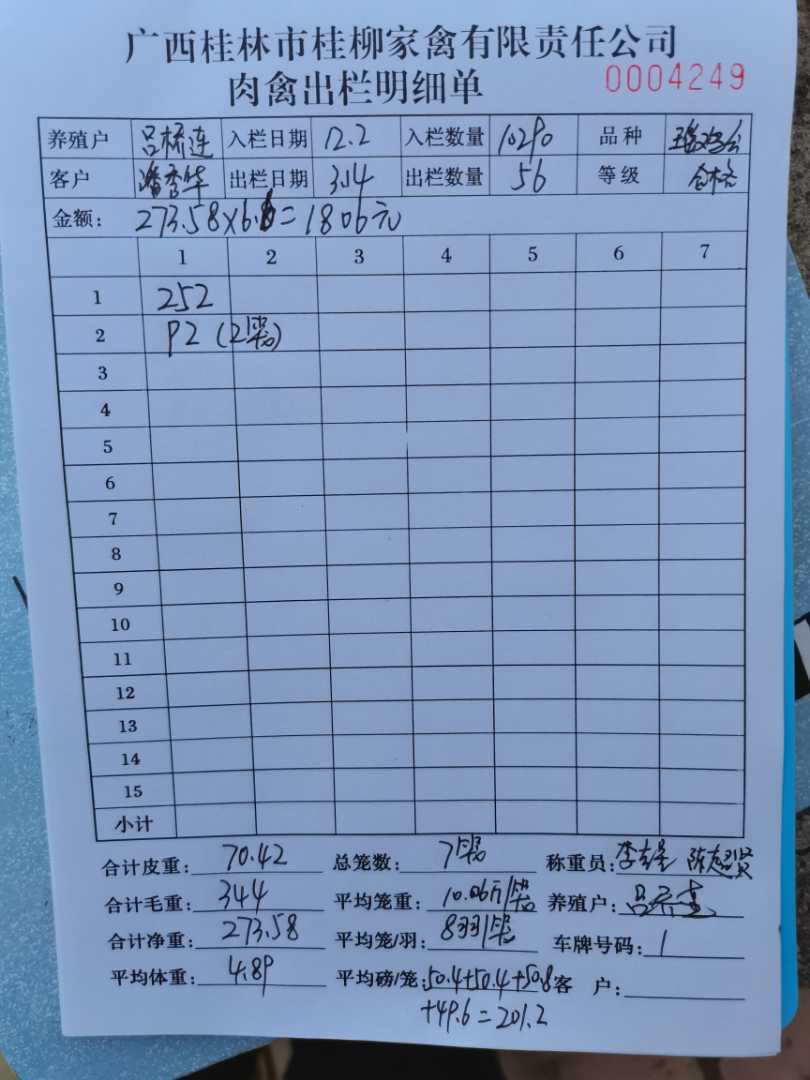 广西桂林市桂柳家禽有限责任公司
肉禽出栏明细单 0004249
养殖户 吕桥连 入栏日期 12.2 入栏数量 10290 品种
客户 潘秀华 出栏日期 3.14 出栏数量 56 等级 合格
金额: 273.58×6.6=1806元
1 2 3 4 5 6 7
1 252
2 92 (2笼)
3
4
5
6
7
8
9
10
11
12
13
14
15
小计
合计皮重: 70.42 总笼数: 7笼 称重员:
合计毛重: 344 平均笼重: 10.06斤/笼 养殖户:
合计净重: 273.58 平均笼/羽: 8羽/笼 车牌号码:
平均体重: 4.89 平均磅/笼: 50.4+50.4+50.8 客户:
+49.6=201.2